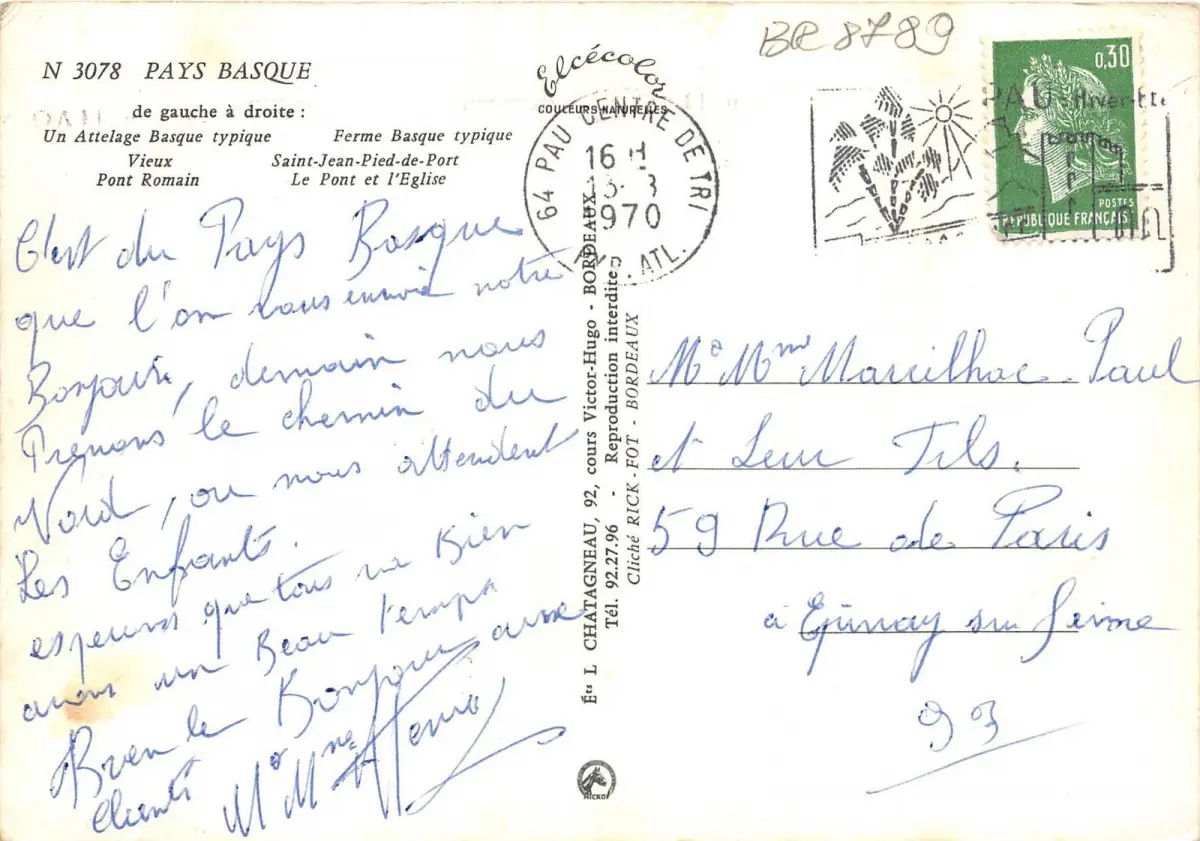 BR 8789
N 3078 PAYS BASQUE
de gauche à droite :
Un Attelage Basque typique Ferme Basque typique
Vieux Saint-Jean-Pied-de-Port
Pont Romain Le Pont et l'Eglise
Elcécolor
COULEURS NATURELLES
64 PAU CENTRE DE TRI
16 H
1970
ATL.
PAU Hiver-Eté
0,30
POSTES
REPUBLIQUE FRANÇAISE
C'est du Pays Basque
que l'on vous envoie notre
Bonjour, demain nous
Prenons le chemin du
Nord, ou nous attendent
Les Enfants.
esperons que tous va Bien
avons un Beau temps
Bonjour aux
clients
Mr Mme
Ets L CHATAGNEAU, 92, cours Victor-Hugo - BORDEAUX
Tél. 92.27.96 - Reproduction interdite
Cliché RICK-FOT - BORDEAUX
MICRO
Mr Mme Marcilhac Paul
et Leur Fils.
59 Rue de Paris
à Epinay sur Seine
93